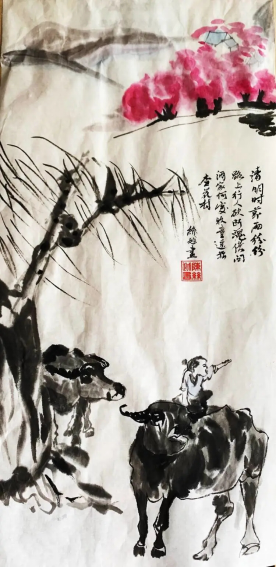 清明时节雨纷纷
路上行人欲断魂借问
酒家何处牧童遥指
杏花村